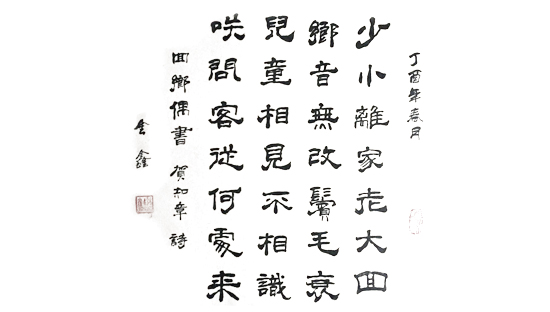 丁酉年春月
少小離家老大囬
鄉音無改鬢毛衰
兒童相見不相識
咲問客従何處来
囬鄉偶書 賀知章詩